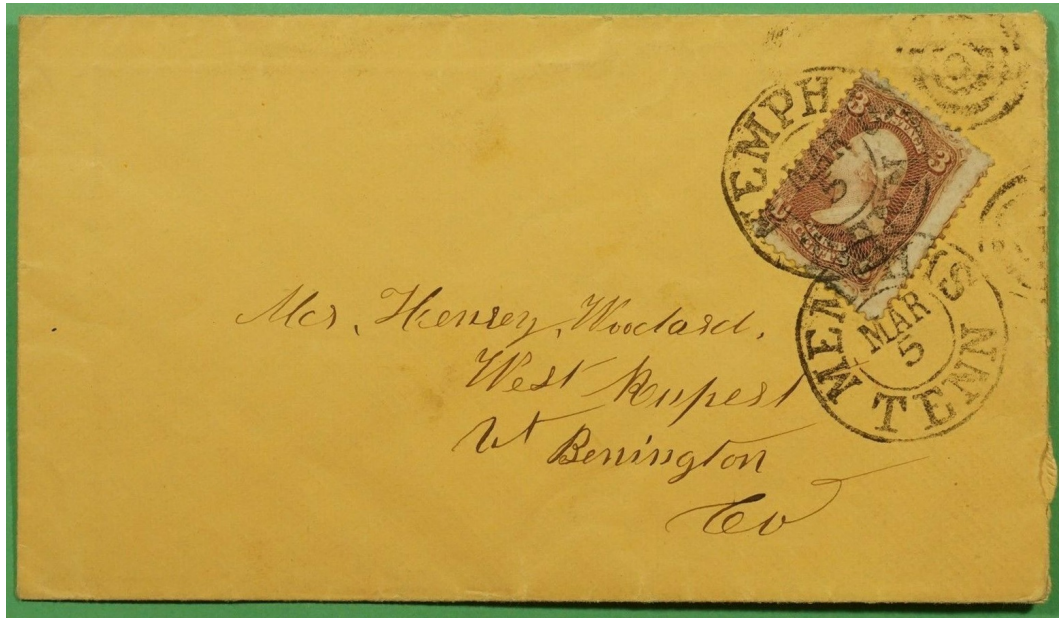 MEMPH
MAR
5
3
3
MEMPHIS
MAR
5
TENN
Mr. Henrey, Woodard,
West Rupert
Vt Benington
Co